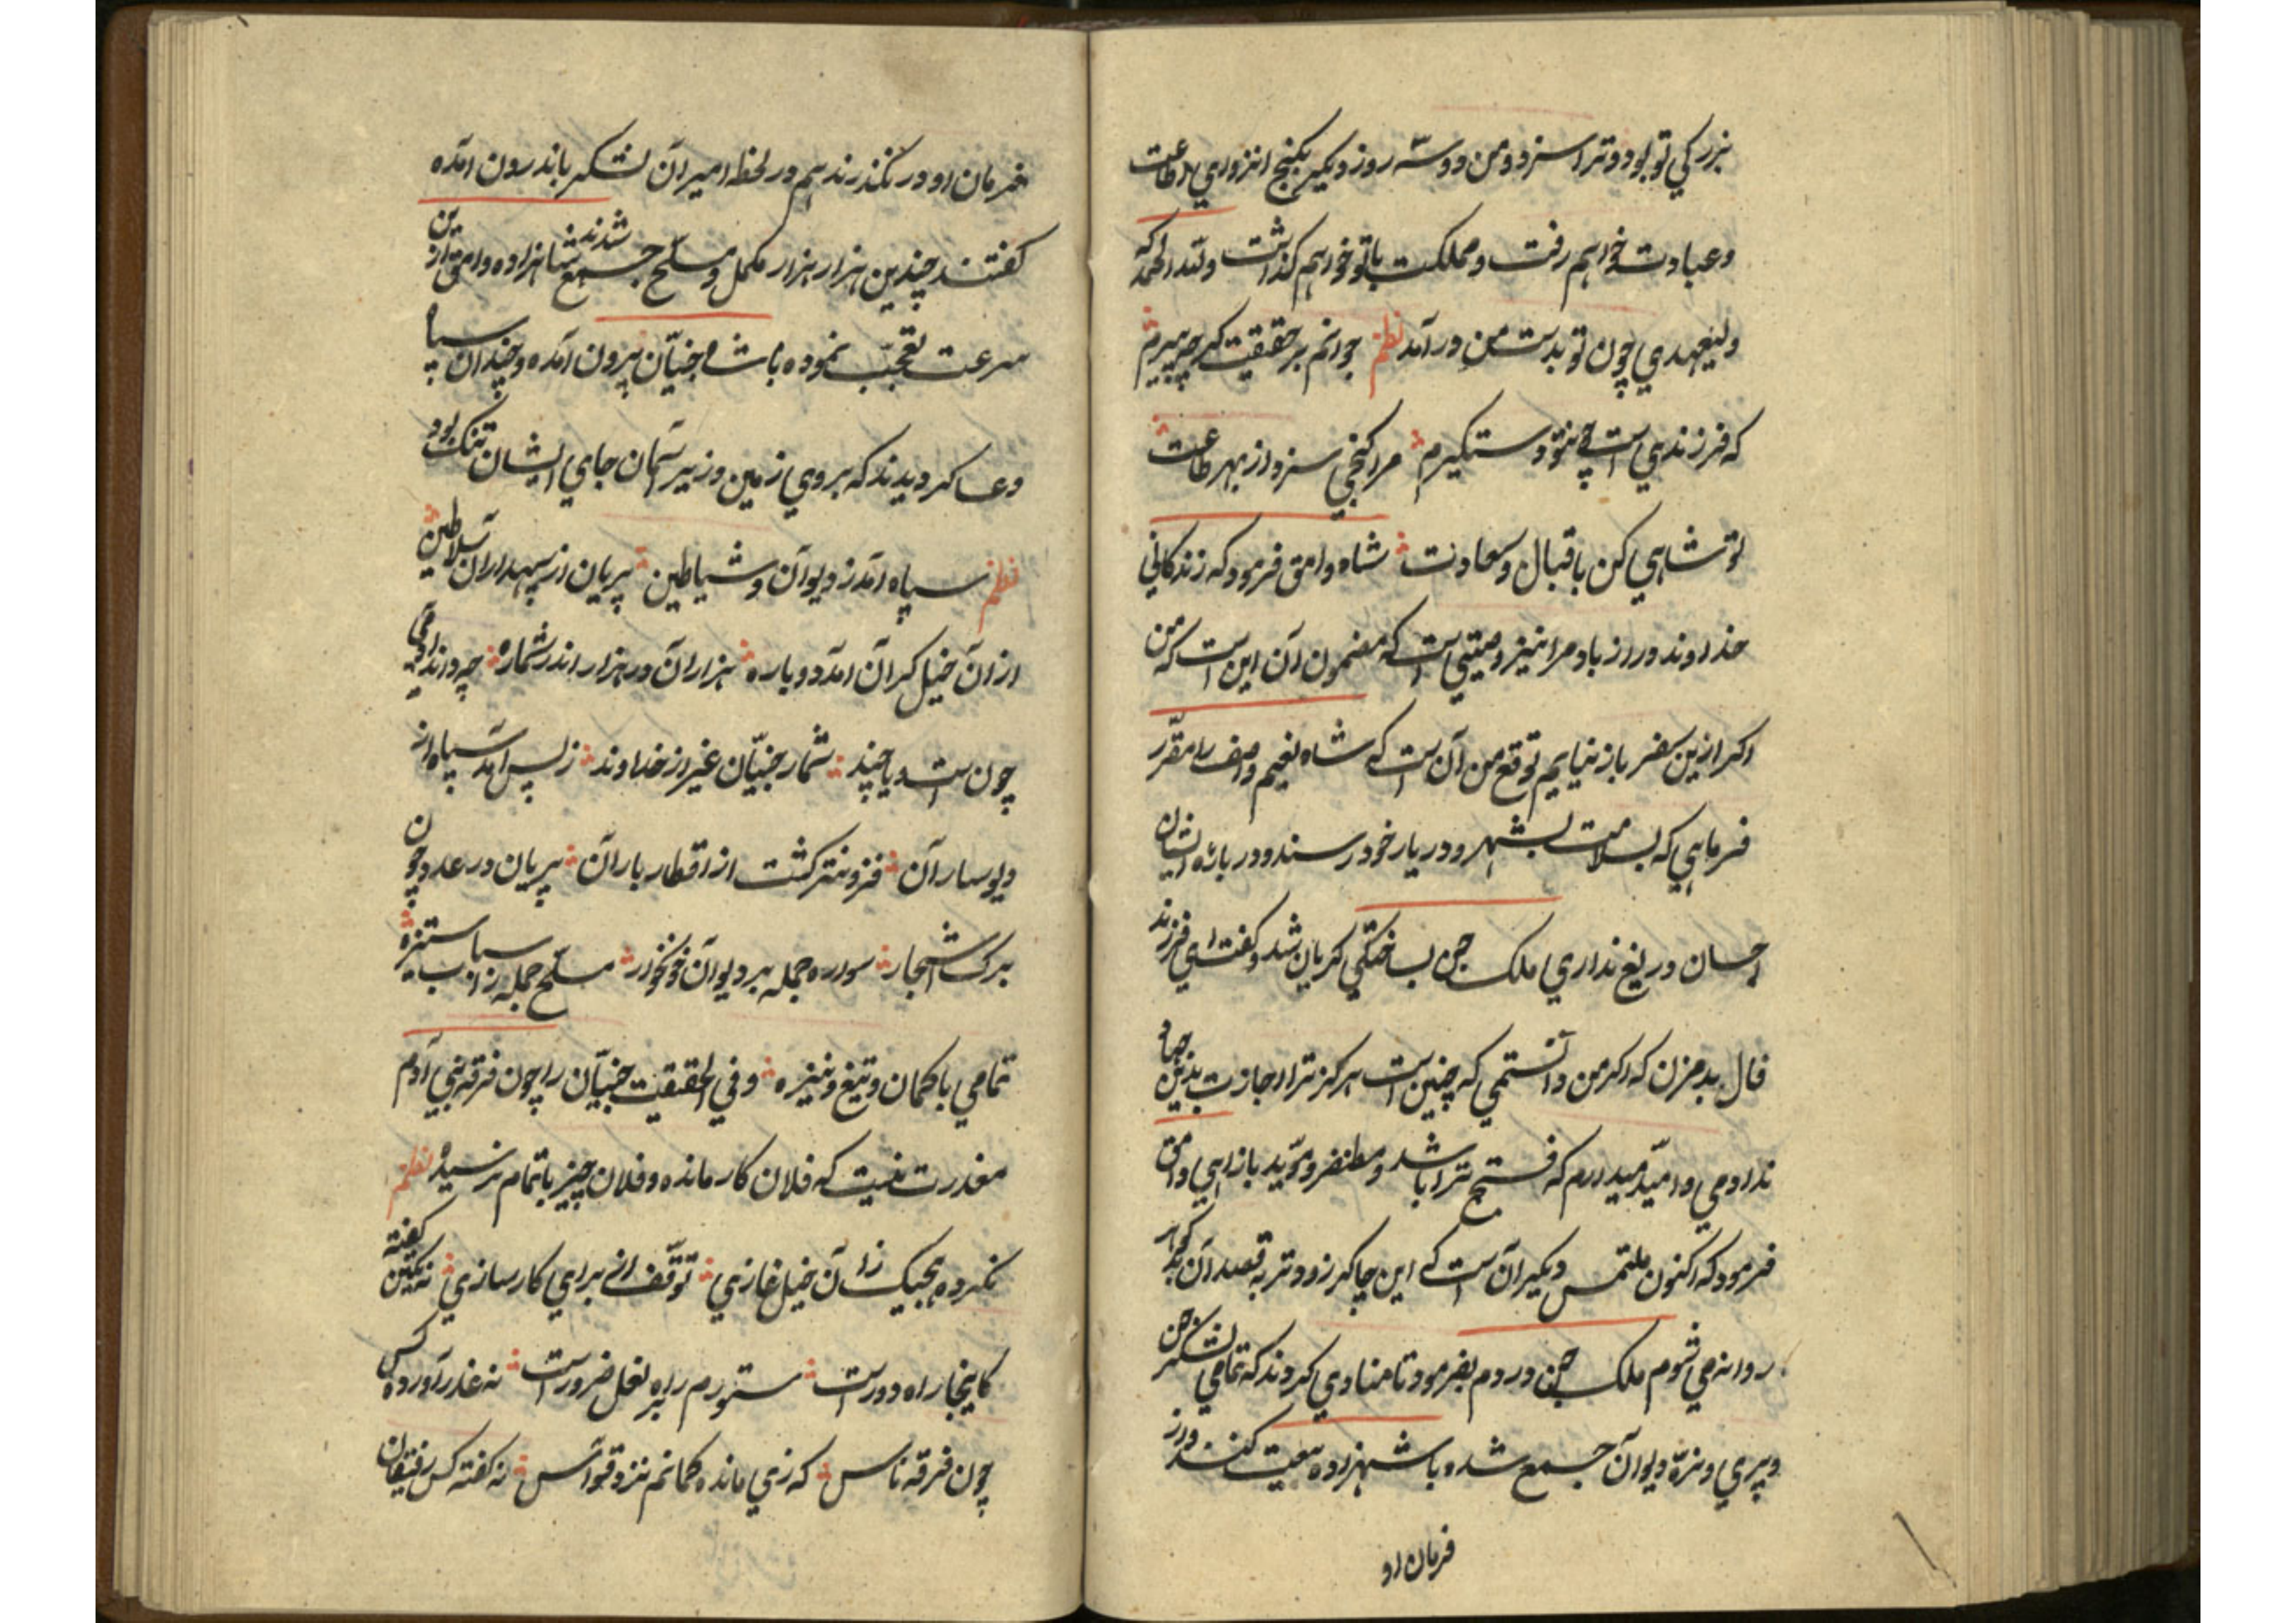 بزرکي تو بود و ترا سزد و من دو سه روز دیکر بکنج انزواي اطاعت
و عبادت خواهم رفت و مملکت باتو خواهم کذاشت و لله الحمد که
ولیعهدي چون تو بدست من در آمد نظم جوانم بر حقیقت کرچه پیرم
که فرزندي است چو تو دستکیرم مرا کنجي سزد از بهر طاعت
تو شاهي کن باقبال و سعادت شاه وامق فرمود که زندکاني
خداوند دراز باد مرا نیز وصیتي است که مضمون آن این است که من
اکر ازین سفر باز نیایم توقع من آن است که شاه نعیم واصف را مقرّر
فرماهي که بسلامت بشهر و دریار خود رسند و در باره ایشان
احسان دریغ نداري ملک جن بساختکي کریان شد و کفت اي فرزند
فال بد مزن که اکر من دانستمي که چنین است هرکز ترا اجازت بدین جهاد
ندادمي و امیّد میدارم که فتح ترا باشد و مظفر و مؤید بازاهي وامق
فرمود که اکنون ملتمس دیکر آن است کے این چاکر زودتر به قصد آن
روانه مي شوم ملک جن در دم بفرمود تا منادي کردند که تمامي لشکر جن
و پري و نرّه دیوان جمع شده با شهزاده بیعت کنند و از
فرمان او
فرمان او در نکذرند هم در لحظه امیران لشکر باندرون آمده
کفتند چندین هزار هزار مکمل و مسلح جمع شدند شاهزاده وامق از ین
سرعت تعجّب نموده با شاه جنیّان بیرون آمده و چندان سپاه
و عساکر دیدند که بروي زمین و زیر آسمان جاي ایشان تنک بود
نظم سپاه آمد ز دیوان و شیاطین پریان از سپهداران سلاطین
ازان خیل کران آمد دوباره هزاران در هزار اندر شماره چه داند آدمي
چون است و یا چند شمار جنیّان غیر از خداوند ز پس آمد سپاه از
دیوساران فزونتر کشت از اقطار باران پریان در عدد چون
برک اشجار سواره جمله بر دیوان مسلح جمله ز اسباب ستیزه
تمامي با کمان و تیغ و نیزه و في الحقیقت جنیّان را چون فرقه بني آدم
معذرت نیست که فلان کار مانده و فلان چیز باتمام نرسیده نظم
نکرده هیچیک زان خیل غازي توقّف اني براي کارسازي نه یکتن کفته
کاینجا راه دور است ستورم را به نعل ضرور است نه عذر آورده کس
چون فرقه ناس که زي مانده کمانم نزد قواس نه کفته کس رفیقان